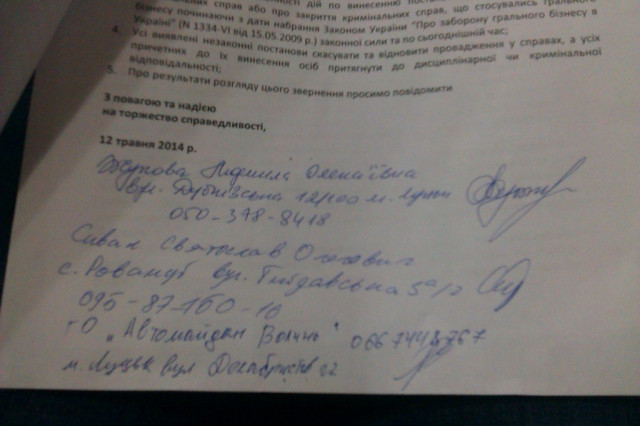 справ або про закриття кримінальних справ, що стосувались грального
бізнесу починаючи з дати набрання Законом України "Про заборону грального бізнесу в
Україні" (N 1334-VI від 15.05.2009 р.) законної сили та по сьогоднішній час;
4. Усі виявлені незаконні постанови скасувати та відновити провадження у справах, а усіх
причетних до їх винесення осіб притягнути до дисциплінарної чи кримінальної
відповідальності;
5. Про результати розгляду цього звернення просимо повідомити
З повагою та надією
на торжество справедливості,
12 травня 2014 р.
Людмила
вул. Дубнівська м. Луцьк
050-378-8418
Сиван Святослав Олегович
с. вул.
095-87-160-10
ГО "Автомайдан Волинь" 066
м. Луцьк вул Декабристів